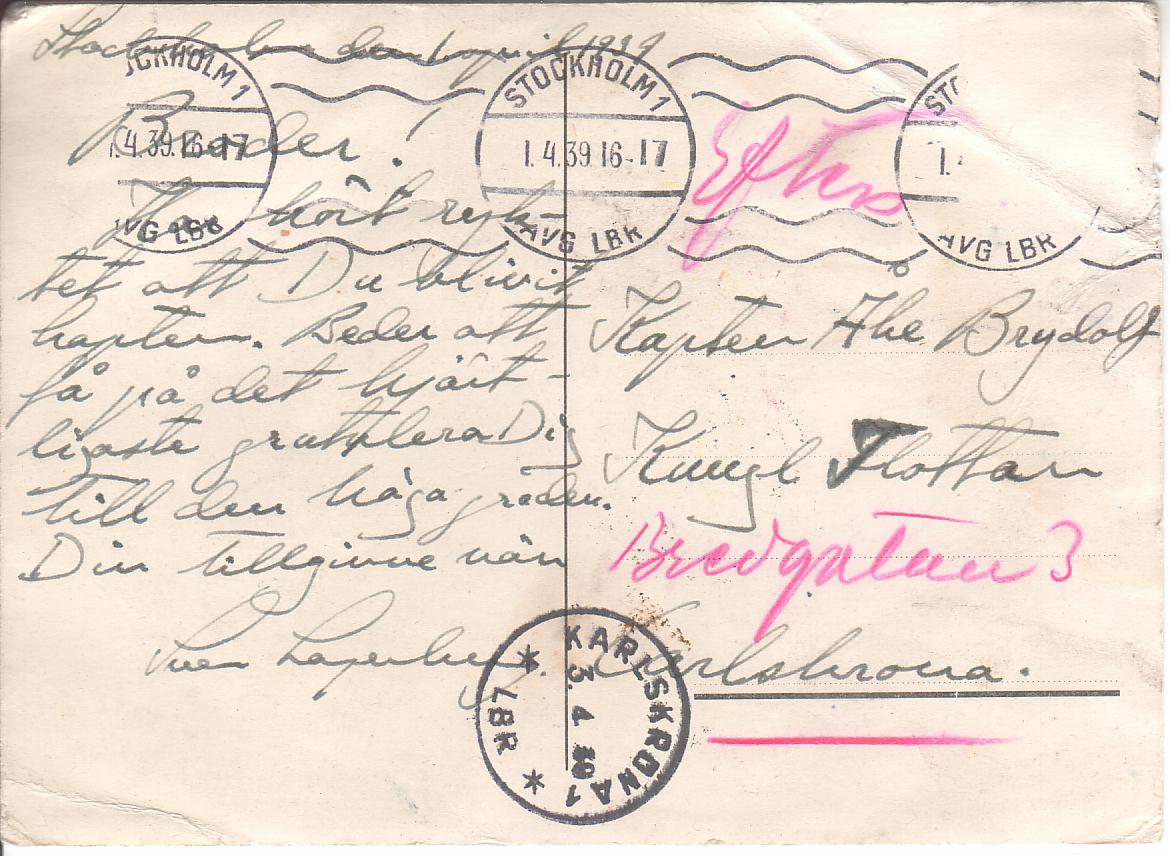 Stockholm den 1 april 1939
OCKHOLM 1
1.4.39.16-17
AVG LBR
STOCKHOLM 1
1.4.39.16-17
AVG LBR
ST
1.4
AVG LBR
Broder!
Har hört ryk-
tet att Du blivit
kapten. Beder att
få på det hjärt-
ligaste gratulera Dig
till den höga graden.
Din tillgivne vän
Sven Lagerberg.
Efters
Kapten Åke Brydolf
Kungl Flottan
Bredgatan 3
Karlskrona.
KARLSKRONA 1
3.4.39
* LBR *